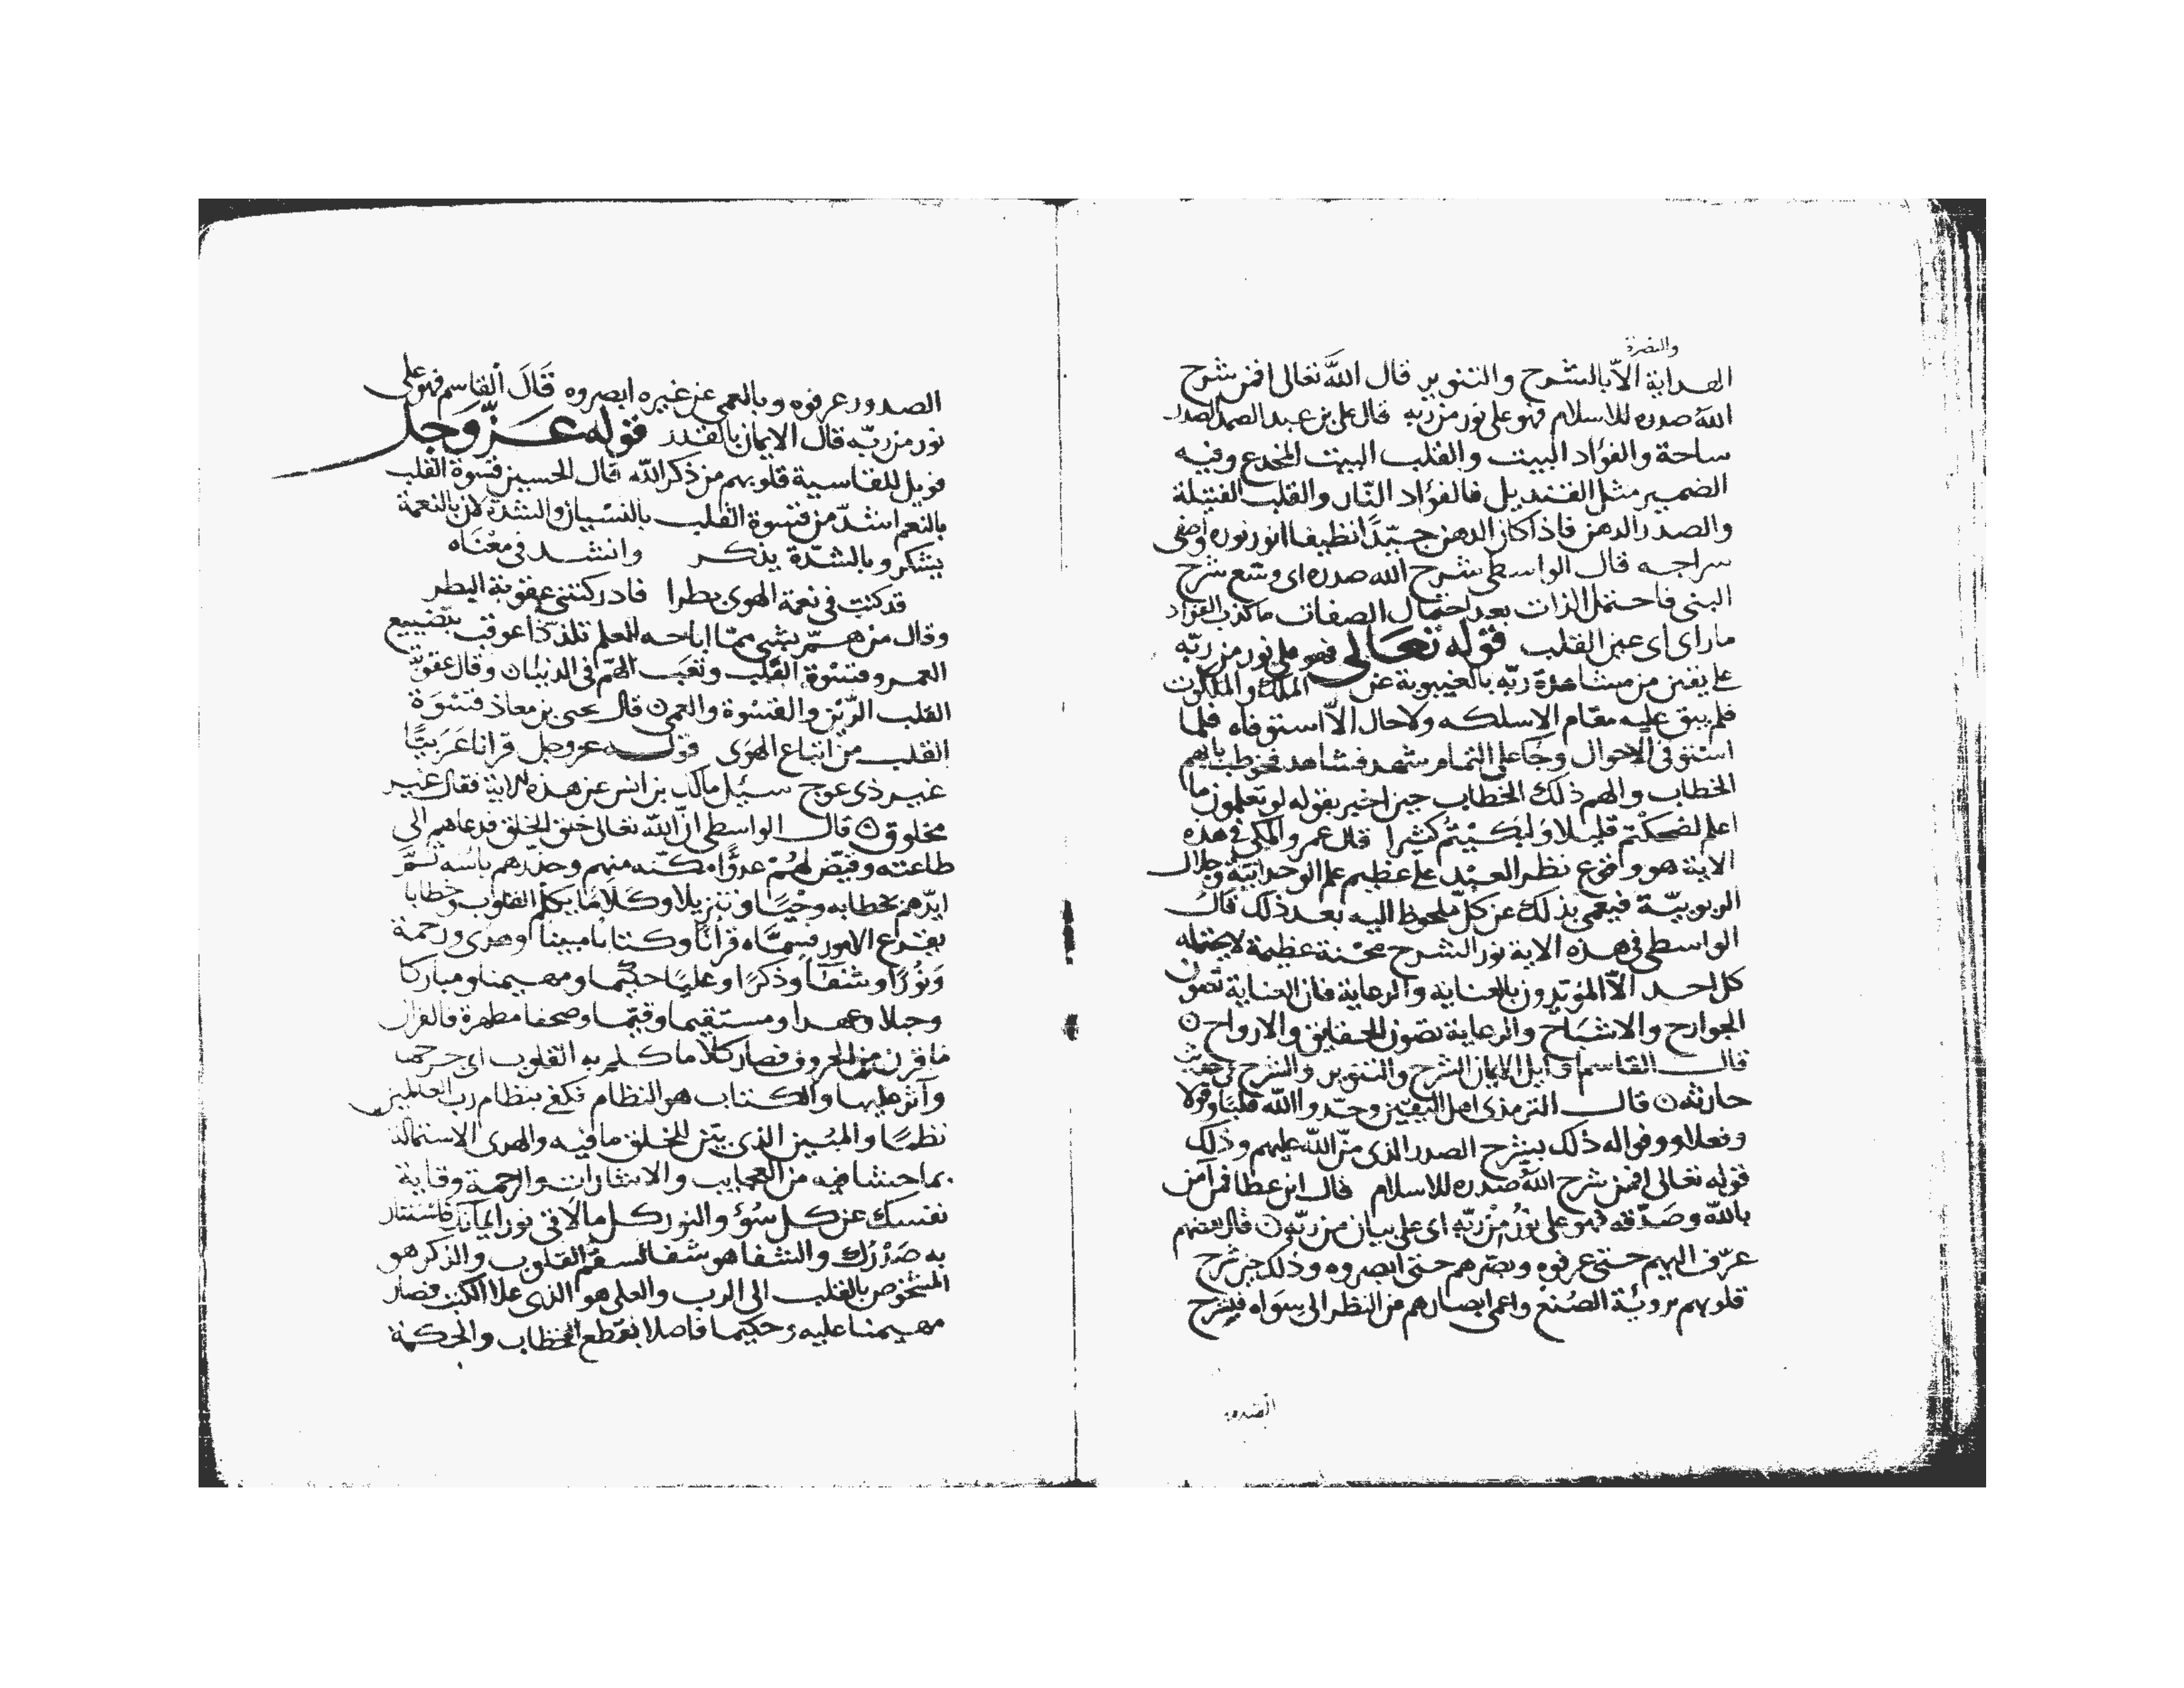 والنصرة
الهداية الّا بالشرح والتنوير قال اللّه تعالى افمن شرح
اللّه صدره للاسلام فهو على نور من ربه قال على بن عبد الصمد الصدر
ساحة والفؤاد البيت والقلب البيت المخدع وفيه
الضمير مثل القنديل فالفؤاد النّار والقلب الفتيلة
والصدر الدهن فاذا كان الدهن جيّدًا نظيفا انور نوره
سراجه قال الواسطى شرح اللّه صدره اى وسّع شرح
البنى فاحتمل الذات بعد احتمال الصفات ما كذب الفؤاد
ما راى اى عين القلب قوله تعالى فهو على نور من ربّه
على يقين من مشاهدة ربّه بالغيبوبة عن الملك والملكوت
فلم يبق عليه مقام الا سلكه ولا حال الّا استوفاه فلما
استوفى الاحوال وجا على التمام شهد فشاهد فخوطب بابهم
الخطاب والهم ذلك الخطاب حين اخبر بقوله لو تعلمون ما
اعلم لضحكتم قليلا ولبكيتم كثيرا قال عمرو المكى فى هذه
الاية هو وقوع نظر العبد على عظيم علم الوحدانية وجلال
الربوبيّة فيعمى بذلك عن كلّ ملحوظ اليه بعد ذلك قال
الواسطى فى هذه الاية نور الشرح محنة عظيمة لا يحتمله
كل احد الّا المؤيدون بالعناية والرعاية فان العناية تصون
الجوارح والاشباح والرعاية تصون الحقايق والارواح ه
قال القاسم اوايل الايمان الشرح والتنوير والشرح فى حديث
حارثه ه قال الترمذى اهل اليقين وحّدوا اللّه قلبا وقولا
وفعلا ذلك بشرح الصدر الذى منّ اللّه عليهم وذلك
قوله تعالى افمن شرح اللّه صدره للاسلام قال ابن عطا فمن آمن
باللّه وصدّقه فهو على نور من ربّه اى على بيان من ربّه ه قال بعضهم
عرّف اليهم حتى عرفوه وبصّرهم حتى ابصروه وذلك حين شرح
قلوبهم بروية الصنع واعمى ابصارهم من النظر الى سواه فبشرح
الصدور
الصدور عرفوه وبالعمى عن غيره ابصروه قال القاسم فهو على
نور من ربّه قال الايمان بالقدر قوله عزّ وجل
فويل للقاسية قلوبهم من ذكر اللّه قال الحسين قسوة القلب
بالنعم اشدّ من قسوة القلب بالنسيان والشدة لان بالنعمة
يشكر وبالشدّة يذكر وانشد فى معناه
قد كنت فى نعمة الهوى بطرا فادركتنى عقوبة البطر
وقال من همّ بشى ممّا اباحه العلم تلذذا عوقب بتضييع
العمر وقسوة القلب وتعب الهمّ فى الدنيا ه وقال عقوبة
القلب الرّين والقسوة والعمى ه قال يحى بن معاذ قسوة
القلب من اتباع الهوى قوله عز وجل قرانا عربيًّا
غير ذى عوج سئل مالك بن انس عن هذه الاية فقال غير
مخلوق ه قال الواسطى انّ اللّه تعالى خلق الخلق فدعاهم الى
طاعته وقيّض لهم عدوًّا مكّنه منهم وحذّرهم باسه ثمّ
ايّدهم بخطابه وحيًا وتنزيلا وكلامًا يكلّم القلوب وخطابا
يقرع الامور فسمّاه قرانًا وكتابا مبينا وهدى ورحمة
ونورًا وشفآ وذكرًا وعليّا حكيما ومهيمنا ومباركا
وحبلا وعهدا ومستقيما وقيّما وصحفا مطهرة فالقران
ما قرن من الحروف فصار كلاما كلم به القلوب اى جرحها
وآثر عليها والكتاب هو النظام فكفى بنظام رب العالمين
نظمًا والمبين الذى بيّن للخلق ما فيه والهدى الاستمالة
بما حشا فيه من العجايب والاشارات والرحمة وقاية
نفسك عن كل سوء والنور كل ما لاقى نور ايمانك فاستنار
به صدرك والشفا هو شفا لسقم القلوب والذكر هو
المشخوص بالقلب الى الرب والعلى هو الذى علا الكتب فصار
مهيمنا عليه وحكيما فاصلا بقطع الخطاب والحركة